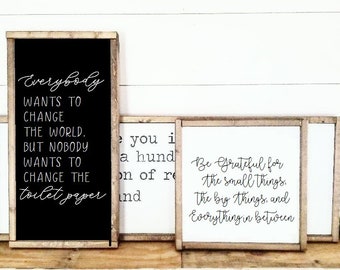 Everybody
WANTS TO
CHANGE
THE WORLD,
BUT NOBODY
WANTS TO
CHANGE THE
toilet paper
e you i
a hund
on of re
and
Be Grateful for
the small things,
the big things, and
Everything in between